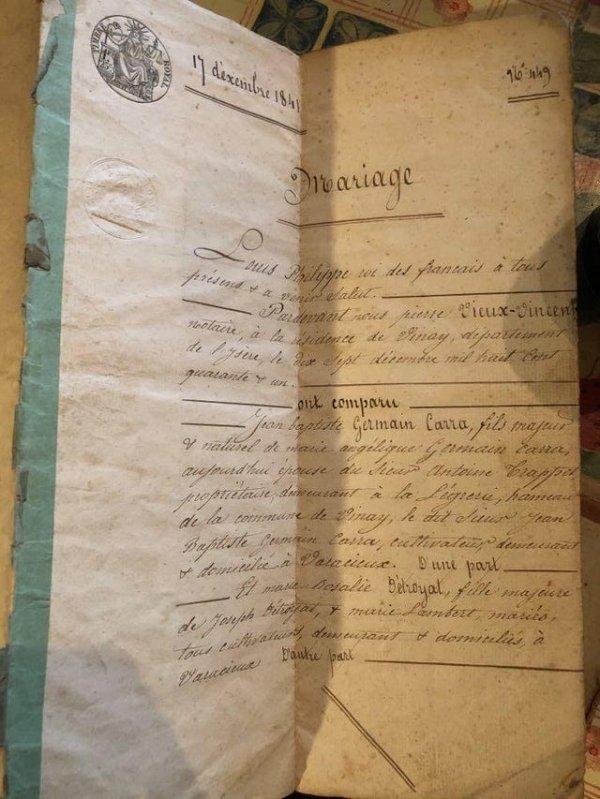 TIMBRE ROYAL
17 décembre 1841
N° 449
Mariage
Louis Philippe roi des français à tous
présens & a venir Salut.
Pardevant nous pierre Vieux-Vincent
notaire, à la résidence de Vinay, département
de l'Isère, le dix Sept décembre mil huit Cent
quarante & un.
ont comparu
Jean baptiste Germain Carra, fils majeur
& naturel de marie angélique Germain Carra,
aujourd'hui épouse du Sieur Antoine Trappos
propriétaire, demeurant à la Légrerie, hameau
de la commune de Vinay, le dit Sieur Jean
Baptiste Germain Carra, cultivateur, demeurant
& domicilié à Varacieux. D'une part
Et marie Rosalie Détroyat, fille majeure
de Joseph Détroyat, & marie Lambert, mariés,
tous cultivateurs, demeurant & domiciliés, à
Varacieux D'autre part